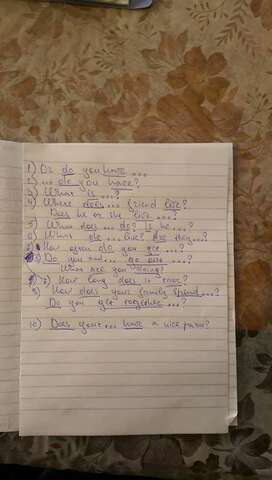 1) Or do you have ...
2) ... do you have?
3) What is ...?
4) Where does ... friend live?
Does he or she like ...?
5) What does ... do? Is he ...?
6) What are ... like? Are they ...?
How often do you see ...?
Do you and ... go out ...?
What are you doing?
7) How long does it ...?
8) How does your family spend ...?
Do you get together ...?
10) Does your ... have a nice ...?